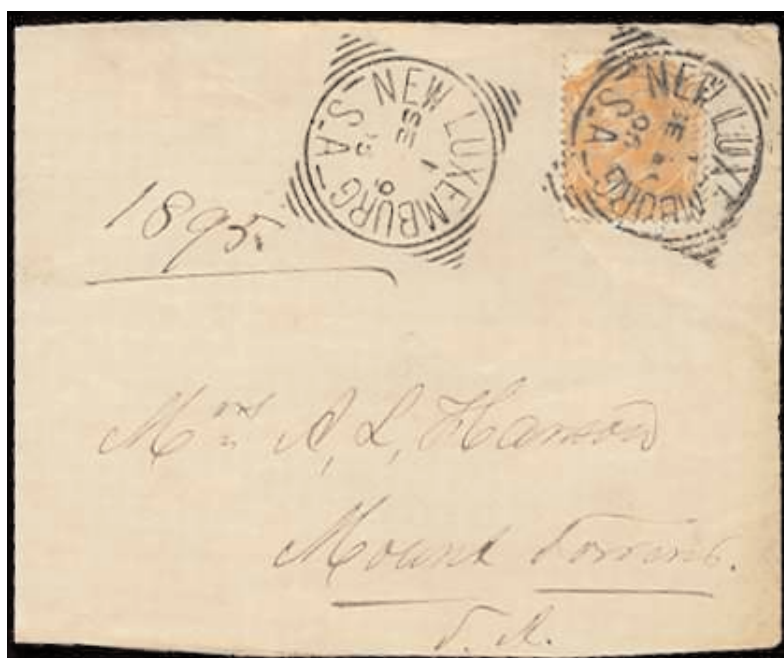 NEW LUXEMBURG S.A
SE 1
95
NEW LUXEMBURG S.A
SE 1
95
1895.
Mrs A, L, Hanson
Mount Torrens.
S. A.